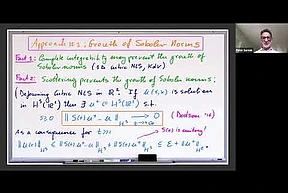 Approach #1: Growth of Sobolev Norms
Fact 1: Complete integrability may prevent the growth of
Sobolev norms (1D cubic NLS, KdV)
Fact 2: Scattering prevents the growth of Sobolev norms:
(Defocusing cubic NLS in ℝ². If u(t,x) is solution
in H^s(ℝ²) then ∃ u⁺ ∈ H^s(ℝ²) s.t.
s≥0 ‖S(t)u⁺ - u‖_{H^s} → 0 (Dodson
t→∞
As a consequence for t>>1 S(t) is unitary!
‖u(t)‖_{H^s} ≤ ‖S(t)u⁺-u‖_{H^s} + ‖S(t)u⁺‖_{H^s} ≤ ε + ‖u⁺‖_{H^s}